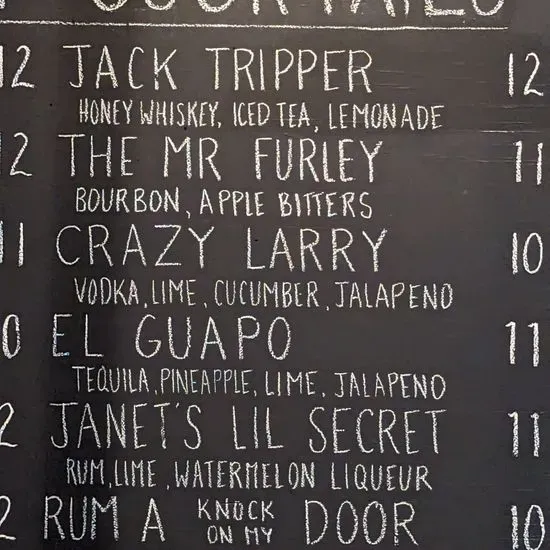 COCKTAILS
12 JACK TRIPPER 12
HONEY WHISKEY, ICED TEA, LEMONADE
12 THE MR FURLEY 11
BOURBON, APPLE BITTERS
11 CRAZY LARRY 10
VODKA, LIME, CUCUMBER, JALAPENO
0 EL GUAPO 11
TEQUILA, PINEAPPLE, LIME, JALAPENO
2 JANET'S LIL SECRET 11
RUM, LIME, WATERMELON LIQUEUR
2 RUM A KNOCK ON MY DOOR 10